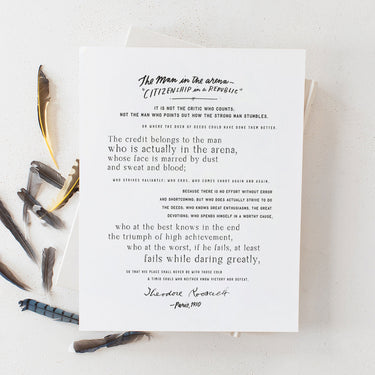 The Man in the arena—
"CITIZENSHIP in a REPUBLIC"
IT IS NOT THE CRITIC WHO COUNTS.
NOT THE MAN WHO POINTS OUT HOW THE STRONG MAN STUMBLES.
OR WHERE THE DOER OF DEEDS COULD HAVE DONE THEM BETTER.
The credit belongs to the man
who is actually in the arena,
whose face is marred by dust
and sweat and blood;
WHO STRIVES VALIANTLY; WHO ERRS, WHO COMES SHORT AGAIN AND AGAIN,
BECAUSE THERE IS NO EFFORT WITHOUT ERROR
AND SHORTCOMING; BUT WHO DOES ACTUALLY STRIVE TO DO
THE DEEDS; WHO KNOWS GREAT ENTHUSIASMS, THE GREAT
DEVOTIONS; WHO SPENDS HIMSELF IN A WORTHY CAUSE,
who at the best knows in the end
the triumph of high achievement,
who at the worst, if he fails, at least
fails while daring greatly,
SO THAT HIS PLACE SHALL NEVER BE WITH THOSE COLD
& TIMID SOULS WHO NEITHER KNOW VICTORY NOR DEFEAT.
Theodore Roosevelt
—Paris, 1910